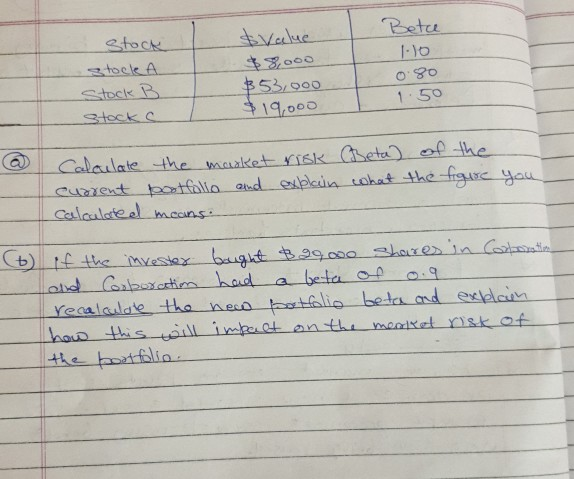 Stock $ Value Beta
Stock A $ 8,000 1.10
Stock B $ 53,000 0.80
Stock C $ 19,000 1.50
(a) Calculate the market risk (Beta) of the
current portfolio and explain what the figure you
calculated means.
(b) If the invester bought $ 29,000 shares in Corporation
and Corporation had a beta of 0.9
recalculate the new portfolio beta and explain
how this will impact on the market risk of
the portfolio.